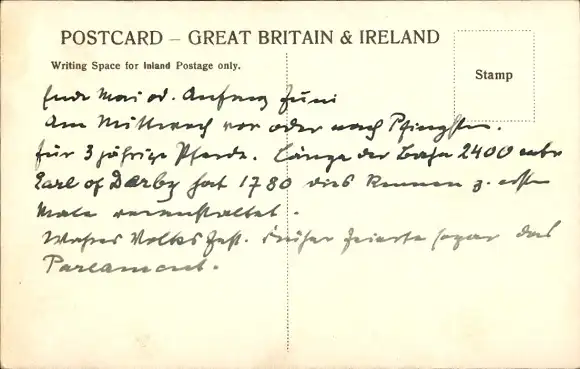 POSTCARD – GREAT BRITAIN & IRELAND
Writing Space for Inland Postage only.
Stamp
Ende Mai od. Anfang Juni
Am Mittwoch vor oder nach Pfingsten.
für 3 jährige Pferde. Länge der Bahn 2400 mtr
Earl of Derby hat 1780 dies Rennen z. ersten
Male veranstaltet.
Wahres Volksfest. Früher feierte sogar das
Parlament.